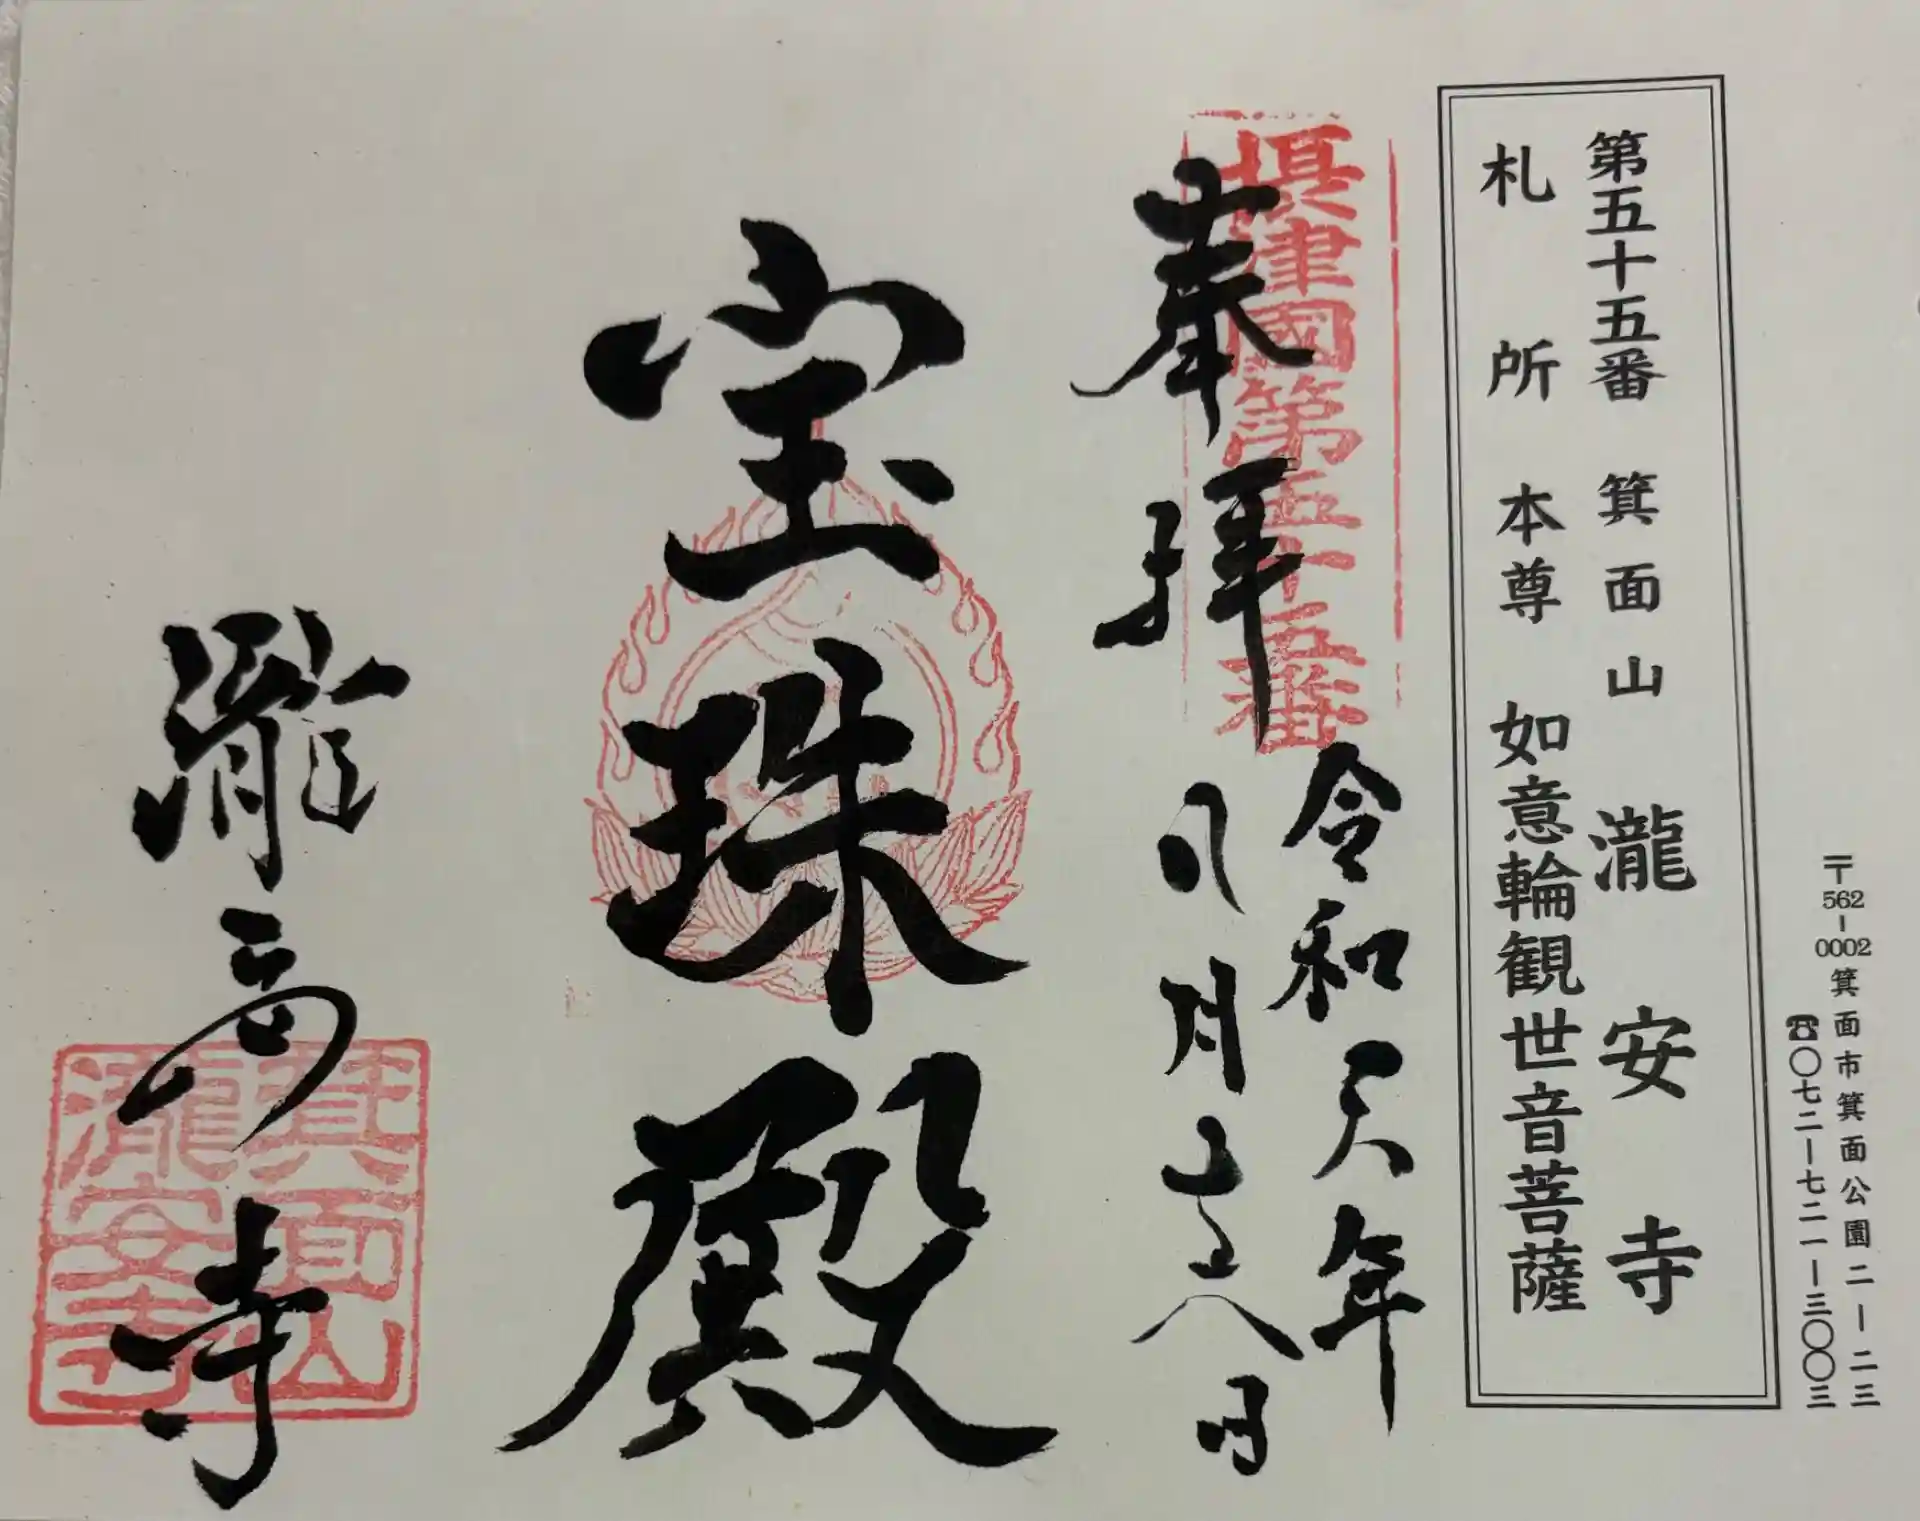 〒562-0002 箕面市箕面公園二ー二三
☎〇七二ー七二一ー三〇〇三
第五十五番 箕面山 瀧安寺
札所 本尊 如意輪観世音菩薩
摂津國第五十五番
奉拝
令和 年
八月 八日
宝珠殿
瀧安寺
箕面山
瀧安寺